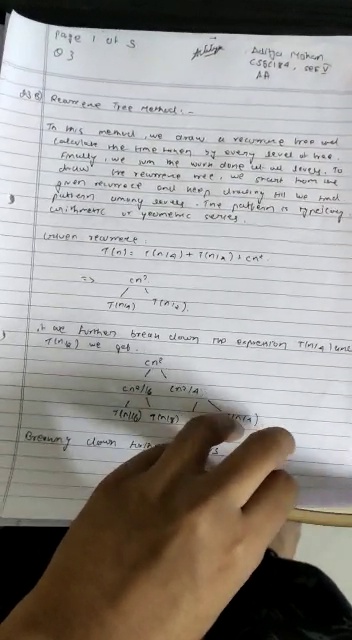 Page 1 of 5
Q 3
Aditya Mohan
CSE184, sec V
AA
Recurrene Tree Method:-
In this method, we draw a recurrence tree and
calculate the time taken by every level of tree.
Finally, we sum the work done at all levels. To
draw the recurrence tree, we start from the
given recurrence and keep drawing till we find
pattern among levels. The pattern is typically
arithmetic or geometric series.
Given recurrence
T(n) = T(n/4) + T(n/2) + cn²
=> cn²
T(n/4) T(n/2).
If we further break down the expression T(n/4) and
T(n/2) we get.
cn²
cn²/16 cn²/4
T(n/16) T(n/8) T(n/4)
Breaking down